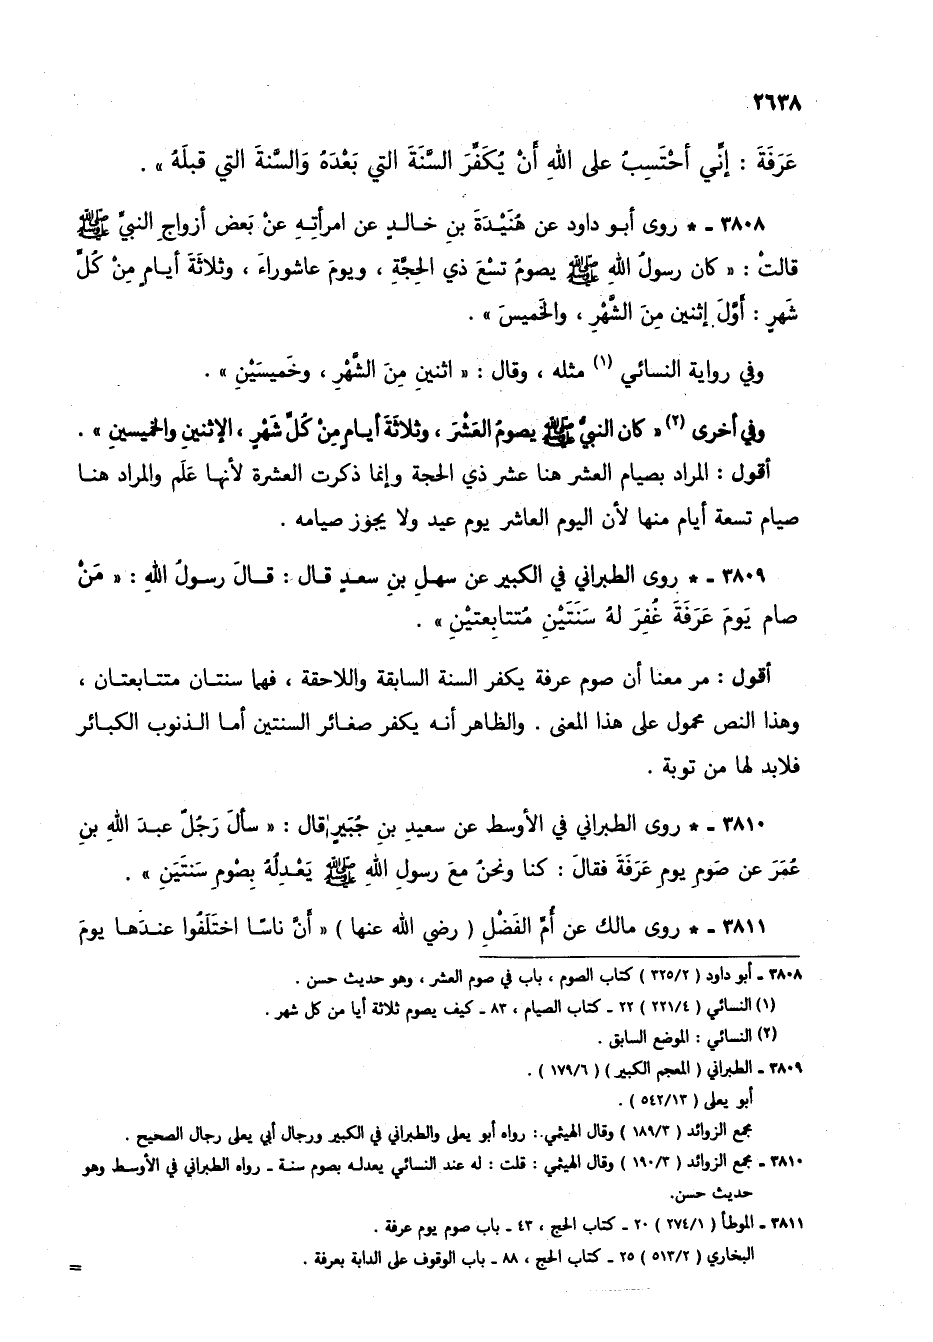 ٢٦٣٨
عَرَفَةَ : إنَّي أحْتَسِبُ على اللهِ أنْ يُكَفَّرَ السَّنَةَ التي بَعْدَهُ وَالسَّنةَ التي قبلَهُ » .
٣٨٠٨ - * روى أبـو داود عن هُنَيْدَةَ بنِ خـالـدٍ عن امرأتِـهِ عنْ بَعضِ أزواجِ النبيَّ ﷺ
قالتْ : « كان رسولُ اللهِ ﷺ يصومُ تسْعَ ذي الحِجَّةِ ، ويومَ عاشوراءَ ، وثلاثَةَ أيـامٍ مِنْ كُلَّ
شَهرٍ : أوَّلَ إثنين مِنَ الشَّهْرِ ، والخَميسَ » .
وفي رواية النسائي (١) مثله ، وقال : « اثنينِ مِنَ الشَّهْرِ ، وخَميسَيْنِ » .
وفي أخرى (٢) « كان النبيَّ ﷺ يصومُ العَشْرَ ، وثلاثَةَ أيـامٍ مِنْ كُلَّ شَهْرٍ ، الإثنينِ والخميسينِ » .
أقول : المراد بصيام العشر هنا عشر ذي الحجة وإنما ذكرت العشرة لأنهـا عَلَم والمراد هنـا
صيام تسعة أيام منها لأن اليوم العاشر يوم عيد ولا يجوز صيامه .
٣٨٠٩ - * روى الطبراني في الكبير عن سهـلِ بنِ سعـدٍ قـال : قـالَ رسـولُ اللهِ : « مَنْ
صام يَومَ عَرَفَةَ غُفِرَ لهُ سَنَتَيْنِ مُتتابعتيْنِ » .
أقول : مر معنا أن صوم عرفة يكفر السنة السابقة واللاحقة ، فهما سنتـان متتـابعتـان ،
وهذا النص محمول على هذا المعنى . والظاهر أنـه يكفر صغـائر السنتين أمـا الـذنوب الكبـائر
فلابد لها من توبة .
٣٨١٠ - * روى الطبراني في الأوسط عن سعيدِ بنِ جُبَيرٍ قال : « سألَ رَجُلٌ عبـدَ اللهِ بنِ
عُمَرَ عن صَومِ يومِ عَرَفَةَ فقالَ : كنا ونحنُ معَ رسولِ اللهِ ﷺ يَعْـدِلُهُ بِصْومِ سَنتَيَنِ » .
٣٨١١ - * روى مالك عن أُمَّ الفَضْلِ ( رضي الله عنها ) « أنَّ ناسًـا اختَلَفُوا عنـدَهـا يومَ
٣٨٠٨ - أبو داود ( ٣٢٥/٢ ) كتاب الصوم ، باب في صوم العشر ، وهو حديث حسن .
(١) النسائي ( ٢٢١/٤ ) ٢٢ - كتاب الصيام ، ٨٣ - كيف يصوم ثلاثة أيا من كل شهر .
(٢) النسائي : الموضع السابق .
٣٨٠٩ - الطبراني ( المعجم الكبير ) ( ١٧٩/٦ ) .
أبو يعلى ( ٥٤٢/١٣ ) .
مجمع الزوائد ( ١٨٩/٣ ) وقال الهيثمي : رواه أبو يعلى والطبراني في الكبير ورجال أبي يعلى رجال الصحيح .
٣٨١٠ - مجمع الزوائد ( ١٩٠/٣ ) وقال الهيثمي : قلت : له عند النسائي يعدلـه بصوم سنـة - رواه الطبراني في الأوسط وهو
حديث حسن.
٣٨١١ - الموطأ ( ٢٧٤/١ ) ٢٠ - كتاب الحج ، ٤٣ - باب صوم يوم عرفة .
البخاري ( ٥١٣/٢ ) ٢٥ - كتاب الحج ، ٨٨ - باب الوقوف على الدابة بعرفة .
=